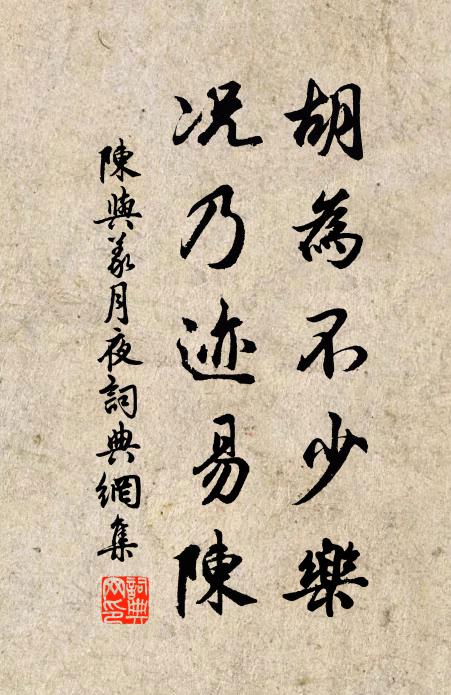 胡為不少樂
况乃迹易陳
陳與義月夜詞典網集
詞典网印